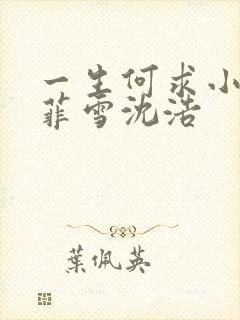 一生何求小
菲雪沈浩
葉佩英